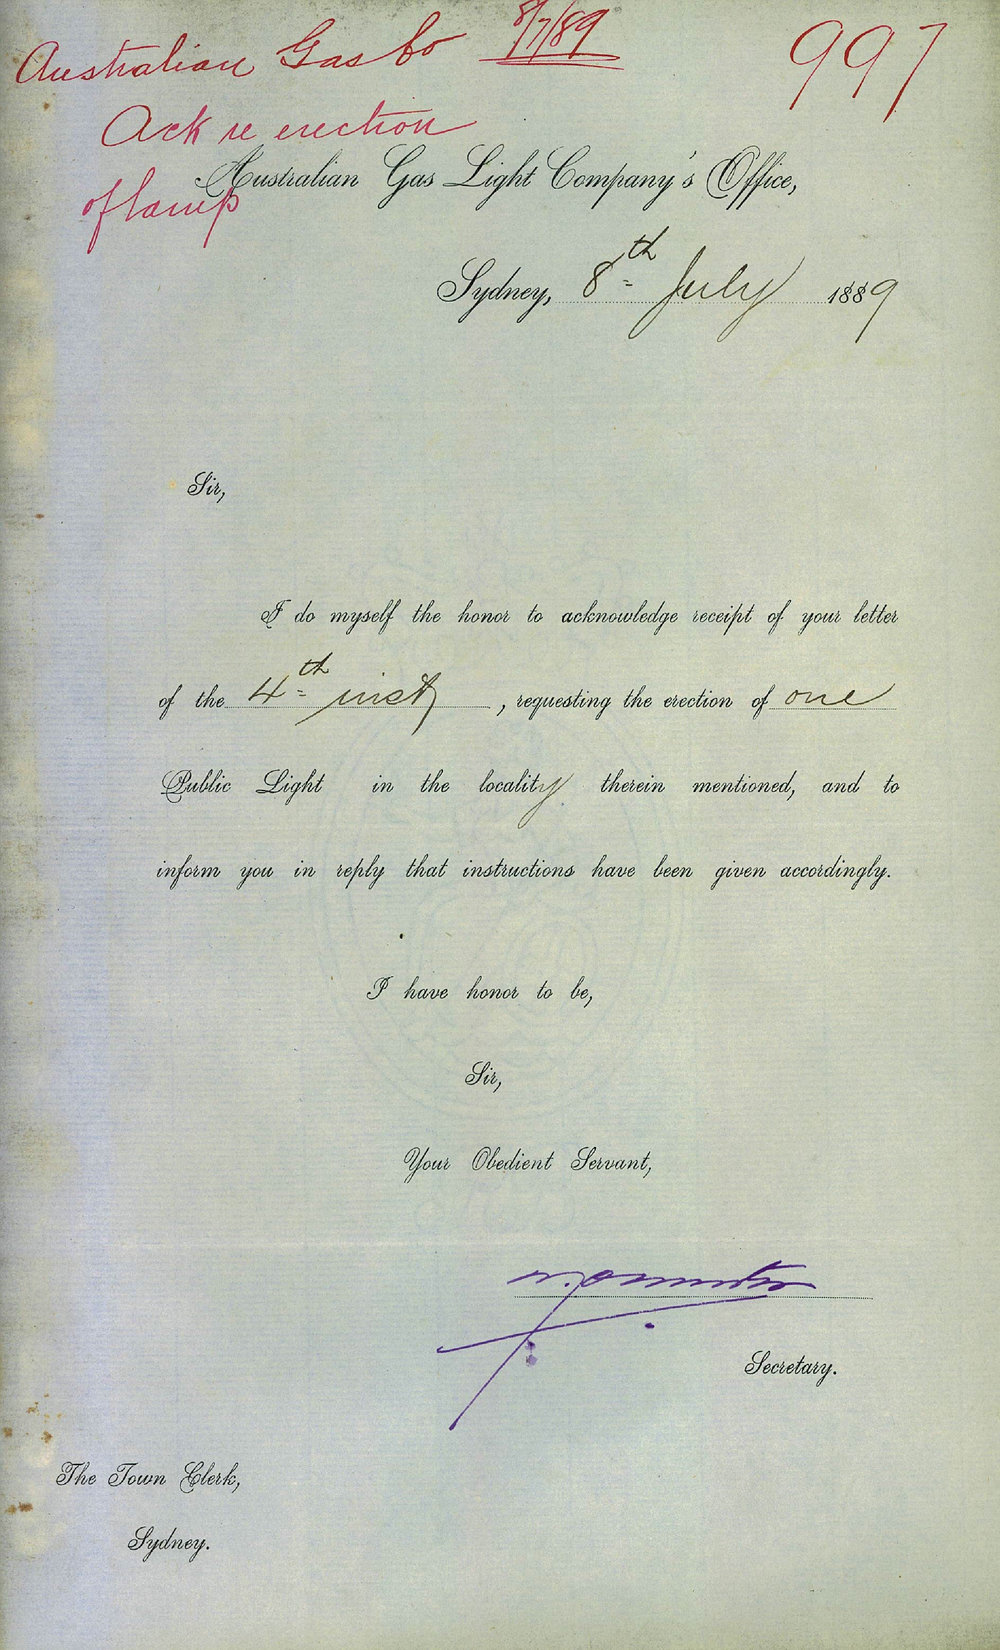 Australian Gas Co 8/7/89
997
Ack re erection
of lamp
Australian Gas Light Company's Office,
Sydney, 8th July 1889
Sir,
I do myself the honor to acknowledge receipt of your letter
of the 4th inst, requesting the erection of one
Public Light in the locality therein mentioned, and to
inform you in reply that instructions have been given accordingly.
I have honor to be,
Sir,
Your Obedient Servant,
Secretary.
The Town Clerk,
Sydney.